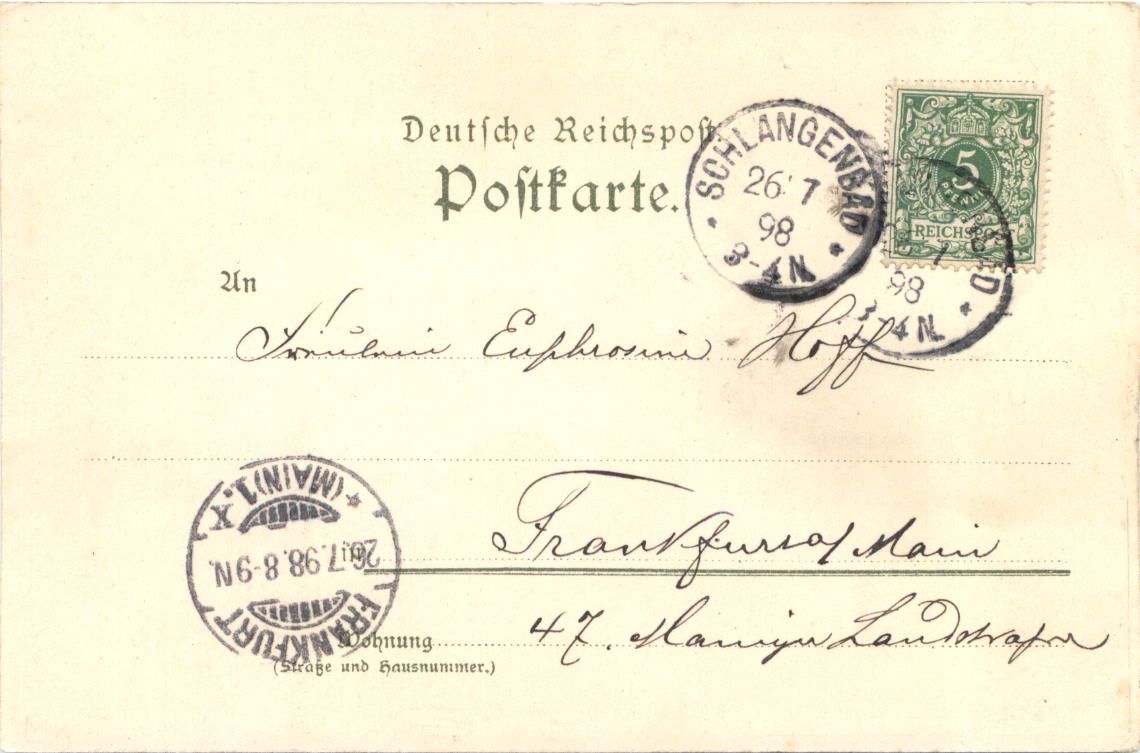 Deutsche Reichspost
Postkarte.
SCHLANGENBAD
26.7
98
3-4 N.
5
REICHSPOST
98
3-4 N.
An
Fräulein Euphrosine Hoff
FRANKFURT (MAIN) 1. X
26.7.98.8-9N.
in Frankfurt a/Main
Wohnung 47. Mainzer Landstrasse
(Straße und Hausnummer.)